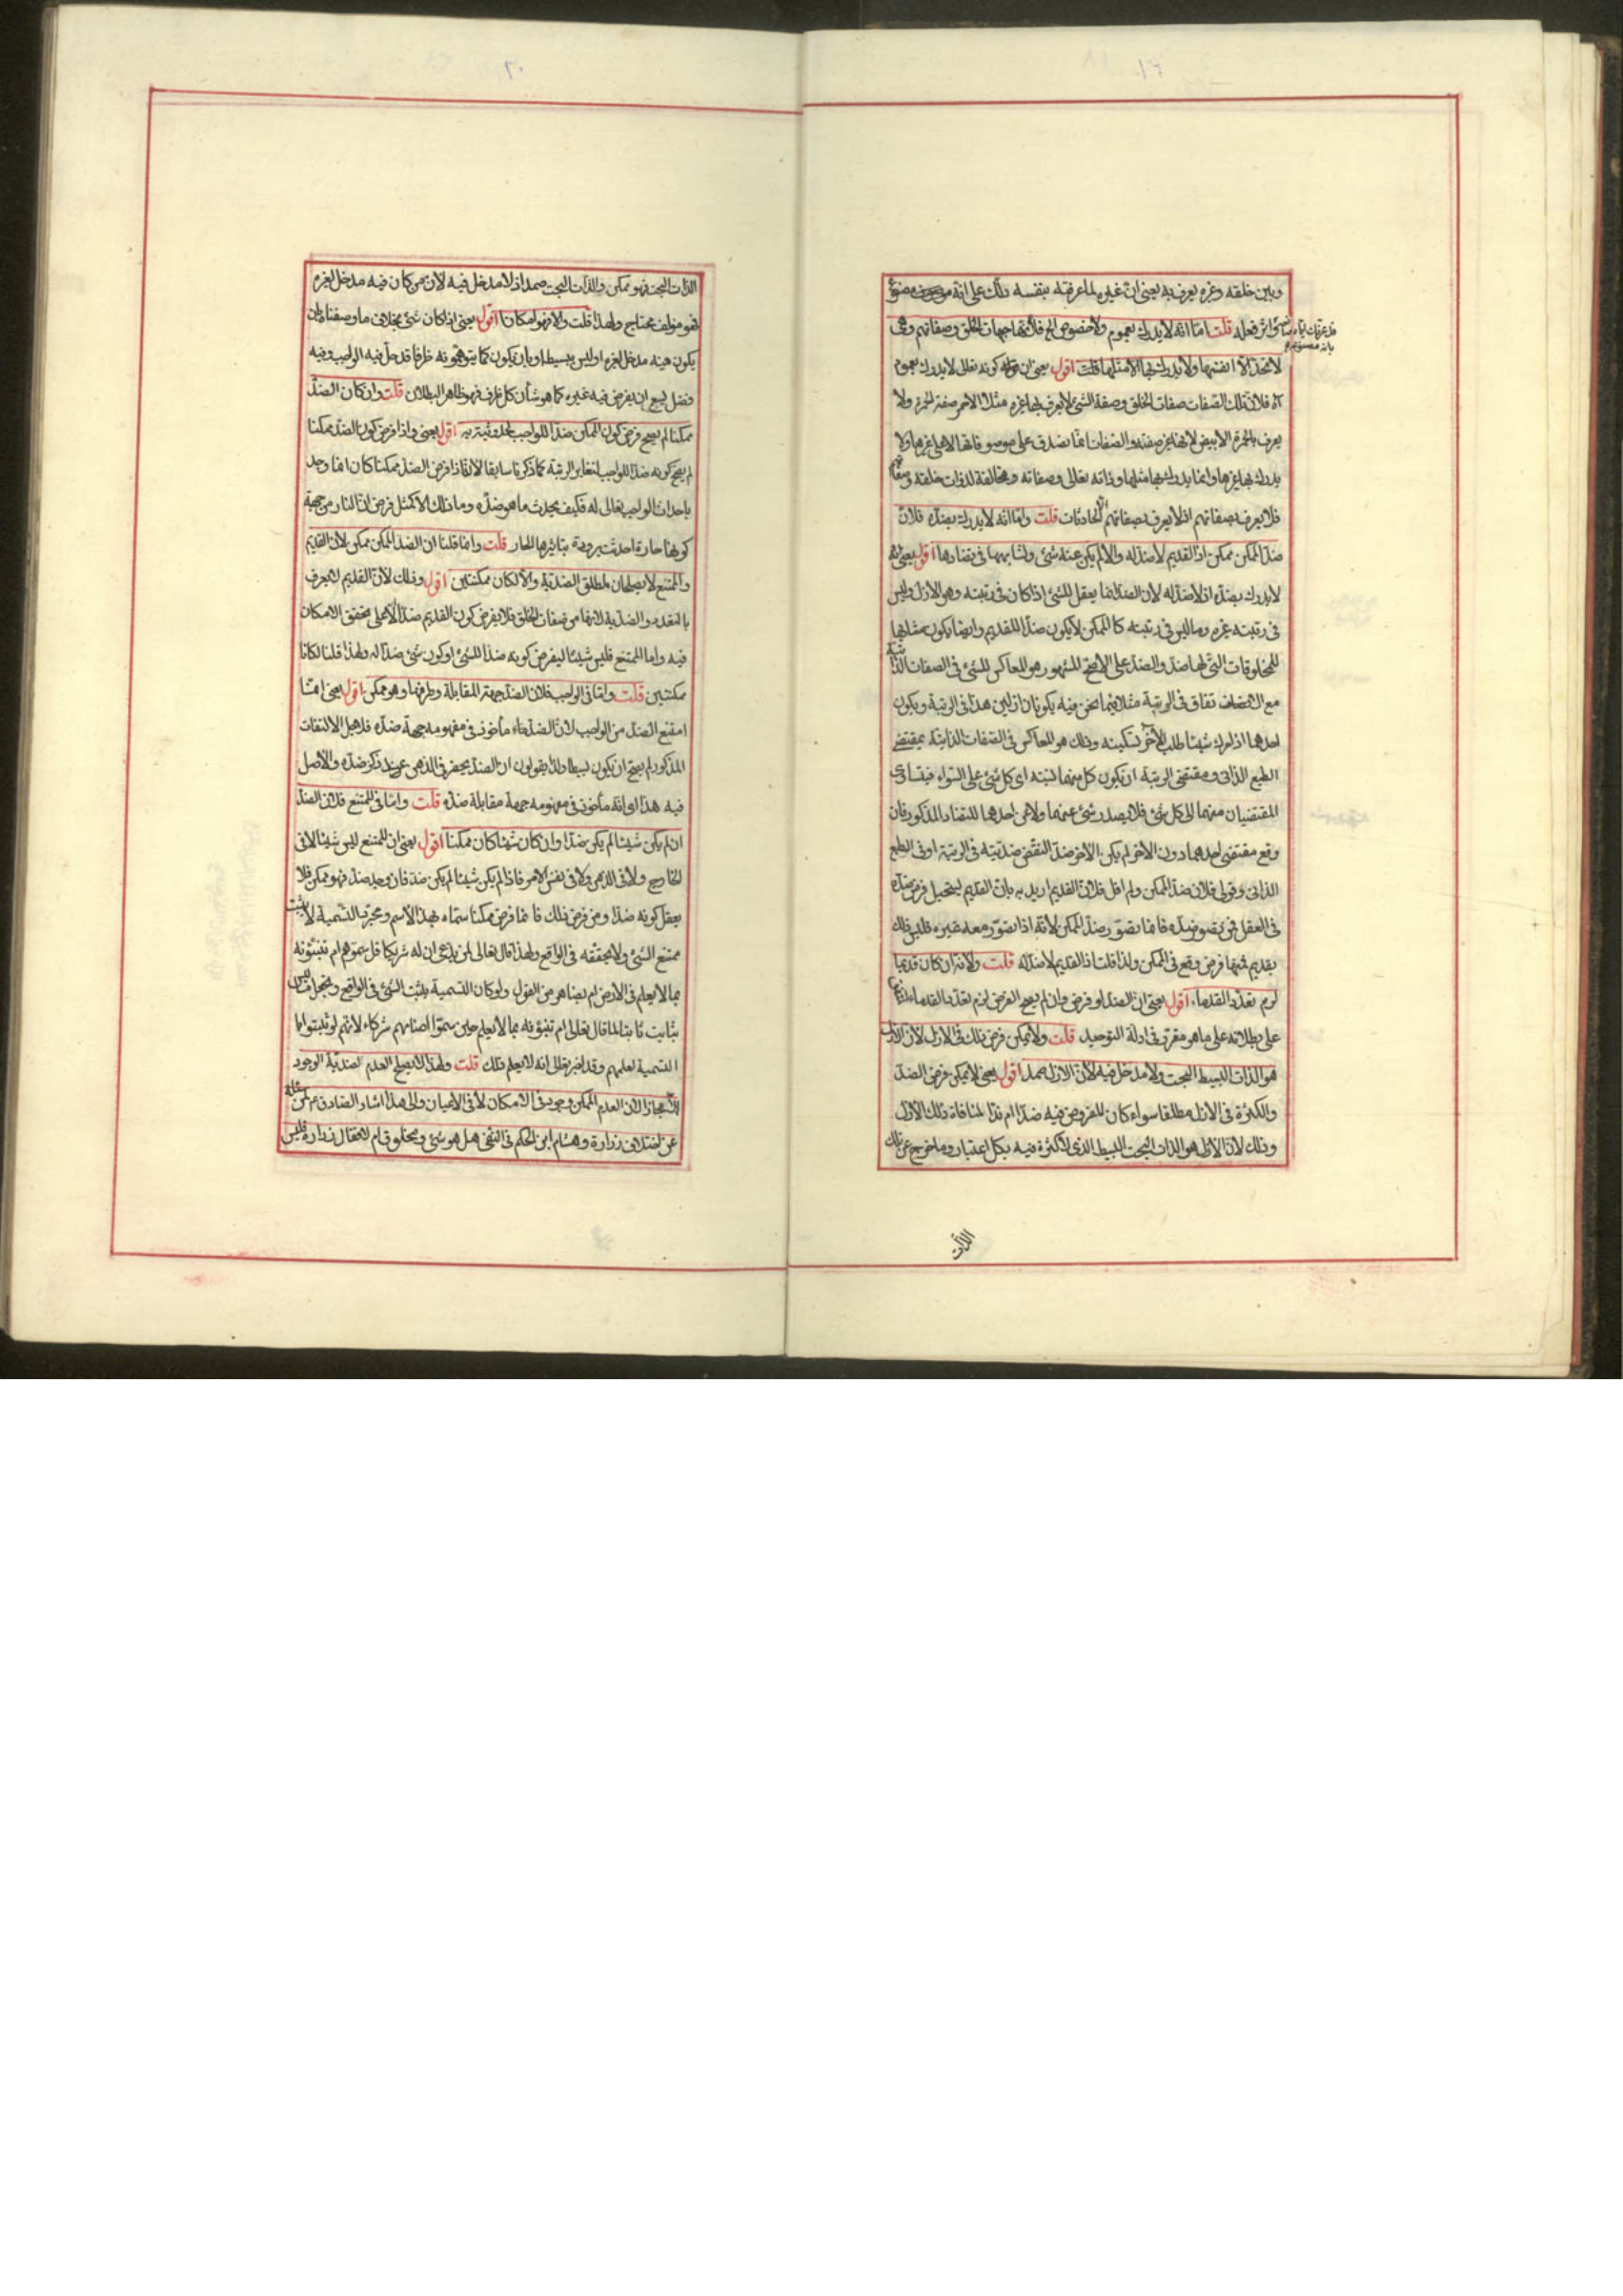 وبين خلقه وغيره يعرف به يعني ان غيره لما عرفته بنفسه دلك على انه مصنوع
واثر فعله قلت اما انه لا يدرك بعموم ولا خصوص الخ فلانها جهات الخلق وصفاتهم وهي
لا تحد الا انفسها ولا يدرك بها الا مثلها قلت اقول يعني ان كونه تعالى لا يدرك بعموم
آه فلان تلك الصفات صفات الخلق وصفة الشيء لا يعرف بها غيره مثلا الاحمر صفته الحمرة ولا
يعرف بالحمرة الابيض لانها غير صفته والصفات انما تصدق على موصوفاتها لا على غيرها ولا
يدرك بها غيرها وانما يدرك بها مثلها وذاته تعالى وصفاته مخالفة لذوات خلقه
فلا يعرف بصفاتهم اذ لا يعرف بصفاتهم الا الحادثات قلت واما انه لا يدرك بضده فلان
ضد الممكن ممكن اذ القديم لا ضد له والا لم يكن عنه شيء ولتشابهها في تضادها اقول يعني انه
لا يدرك بضده اذ لا ضد له لان الضد انما يعقل للشيء اذا كان في رتبته وهو الازل وليس
في رتبته غيره وما ليس في رتبته كالممكن لا يكون ضدا للقديم وايضا يكون مشابها
للمخلوقات التي لها ضد والضد على الاصح المشهور هو المعاكس للشيء في الصفات الذاتية
مع الاتصاف تفاق في الرتبة مثلا فيما نحن فيه يكونان ازليين هذا في الرتبة ويكون
احدهما اذا حرك شيئا طلب الاخر تسكينه وذلك هو المعاكس في الصفات الذاتية بمقتضى
الطبع الذاتي ومقتضى الرتبة ان يكون كل منهما نسبته اى كل شيء على السواء فيتساوى
المقتضيان منهما الى كل شيء فلا يصدر شيء عنهما ولا عن احدهما للتضاد المذكور فان
وقع مقتضى احدهما دون الاخر لم يكن الاخر ضدا لنقض ضديته في الرتبة او في الطبع
الذاتي وقولي فلان ضد الممكن ولم اقل فلان القديم اريد به بان القديم يستحيل فرض ضده
في العقل فمن تصور ضده فانما تصور ضد الممكن لانه اذا تصور معه غيره فليس ذلك
بقديم فمهما فرض وقع في الممكن ولذا قلت اذ القديم لا ضد له قلت ولانه ان كان قديما
لزم تعدد القدماء اقول يعني ان الضد لو فرض وان لم يصح الفرض لزم تعدد القدماء
على بطلانه على ما هو مقرر في ادلة التوحيد قلت ولا يمكن فرض ذلك في الازل لان الازل
هو الذات البسيط البحت ولا مدخل فيه لان الازل صمد اقول يعني لا يمكن فرض الضد
والكثرة في الازل مطلقا سواء كان المفروض فيه ضدا ام ندا لمنافاة ذلك الازل
وذلك لان الازل هو الذات البحت البسيط الذي لا كثرة فيه بكل اعتبار وما خرج عن تلك
الذات
الذات البحت فهو ممكن والذات البحت صمد اذ لا مدخل فيه لان من كان فيه مدخل لغيره
فهو مؤلف محتاج ولهذا قلت والا فهو امكان اقول يعني اذا كان شيء بخلاف ما وصفنا بان
يكون فيه مدخل لغيره او ليس ببسيط او بان يكون كما يتوهمونه ظرفا قد حل فيه الواجب وفيه
فضل يسع ان يفرض فيه غيره كما هو شأن كل ظرف فهو ظاهر البطلان قلت وان كان الضد
ممكنا لم يصح فرض كون الممكن ضدا للواجب لحدوثيته به اقول يعني واذا فرض كون الضد ممكنا
لم يصح كونه ضدا للواجب لتغاير الرتبة كما ذكرنا سابقا لانا اذا فرض الضد ممكنا كان انما وجد
باحداث الواجب تعالى له فكيف يحدث ما هو ضده وما ذلك الا كمثل فرض ان النار من جهة
كونها حارة احدثت برودة بتاثيرها الحار قلت وانما قلنا ان الضد الممكن ممكن لان القديم
والممتنع لا يصلحان لمطلق الضدية والا لكان ممكنتين اقول وذلك لان القديم لا يعرف
بالتعدد والضدية لانها من صفات الخلق فلا يفرض كون القديم ضدا الا على تحقق الامكان
فيه واما الممتنع فليس شيئا ليفرض كونه ضدا للشيء او كون شيء ضدا له ولهذا قلنا لكانا
ممكنتين قلت واما في الواجب فلان الضد جهته المقابلة وطرفها وهو ممكن اقول يعني انما
امتنع الضد من الواجب لان الضد مأخوذ في مفهومه جهة ضده فلاجل الالتفات
المذكور لم يصح ان يكون بسيطا ولذا يقولون ان الضد يحضر في الذهن عند ذكر ضده والاصل
فيه هذا اى انه مأخوذ في مفهومه جهة مقابلة ضده قلت واما في الممتنع فلان الضد
ان لم يكن شيئا لم يكن ضدا وان كان شيئا كان ممكنا اقول يعني ان الممتنع ليس شيئا لا في
الخارج ولا في الذهن ولا في نفس الامر فاذا لم يكن شيئا لم يكن ضد فان وجد ضد فهو ممكن فلا
يعقل كونه ضدا ومن فرض ذلك فانما فرض ممكنا سماه بهذا الاسم ومجرد التسمية لا يثبت
ممتنع الشيء ولا يحققه في الواقع ولهذا قال تعالى لمن يدعى ان له شريكا قل سموهم ام تنبئونه
بما لا يعلم في الارض ام بظاهر من القول ولو كان التسمية يثبت الشيء في الواقع ويجعل ما ليس
بثابت ثابتا لما قال تعالى ام تنبؤنه بما لا يعلم حين سموا اصنامهم شركاء لانهم لو ثبتوا بها
التسمية لعلمهم وقد اخبر تعالى انه لا يعلم ذلك قلت ولهذا لا يصلح العدم لضدية الوجود
الا مجازا لان العدم الممكن وجود في الامكان لا في الاعيان والى هذا اشار الصادق ع لمن سأله
عن اختلاف زرارة وهشام ابن الحكم في النفي هل هو شيء ومخلوق ام لا فقال زرارة ليس